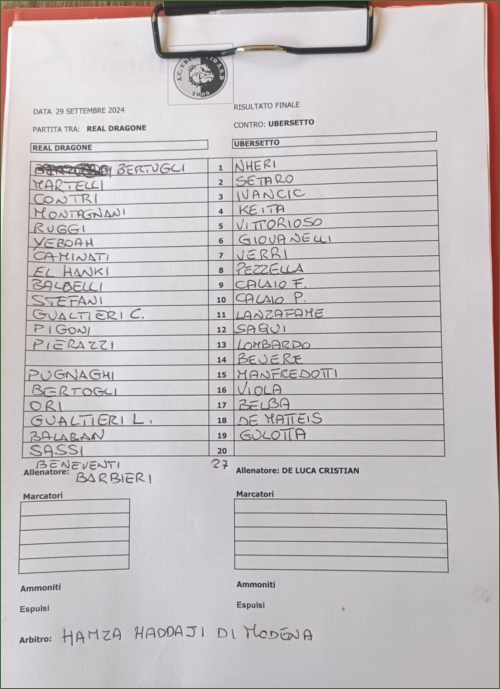 2006
DATA 29 SETTEMBRE 2024 RISULTATO FINALE
PARTITA TRA: REAL DRAGONE CONTRO: UBERSETTO
REAL DRAGONE UBERSETTO
BERTUGLI 1 NHERI
MARTELLI 2 SETARO
CONTRI 3 IVANCIC
MONTAGNANI 4 KEITA
RUGGI 5 VITTORIOSO
YEBOAH 6 GIOVANELLI
CAMINATI 7 VERRI
EL HANKI 8 PEZZELLA
BALBELLI 9 CALAIO F.
STEFANI 10 CALAIO P.
GUALTIERI C. 11 LANZAFAME
PIGONI 12 SAQUI
PIERAZZI 13 LOMBARDO
14 BEVERE
PUGNAGHI 15 MANFREDOTTI
BERTOGLI 16 VIOLA
ORI 17 BELBA
GUALTIERI L. 18 DE MATTEIS
BALABAN 19 GULOTTA
SASSI 20
BENEVENTI 27
Allenatore: BARBIERI Allenatore: DE LUCA CRISTIAN
Marcatori Marcatori
Ammoniti Ammoniti
Espulsi Espulsi
Arbitro: HAMZA HADDAJI DI MODENA